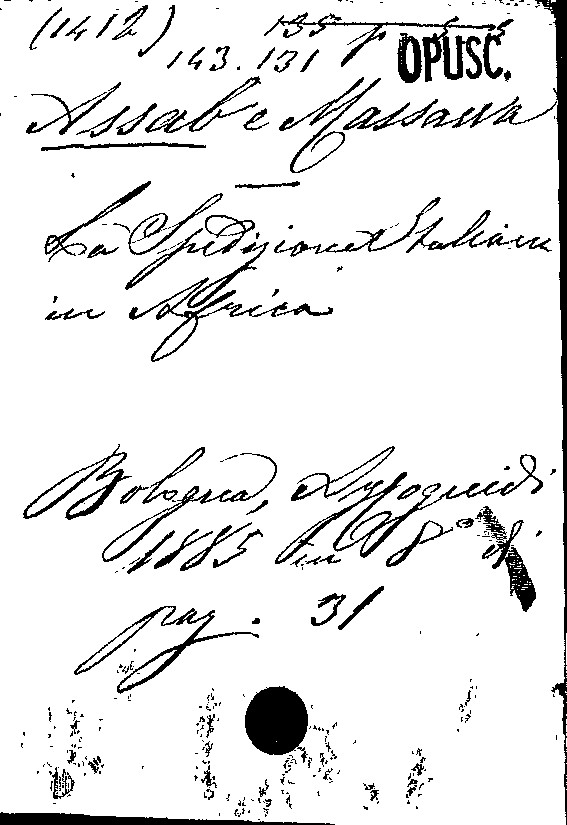 (1412)
143.131
OPUSC.
Assab e Massawa
La Spedizione Italiana
in Africa
Bologna, Azzoguidi
1885 in 8° di
pag. 31